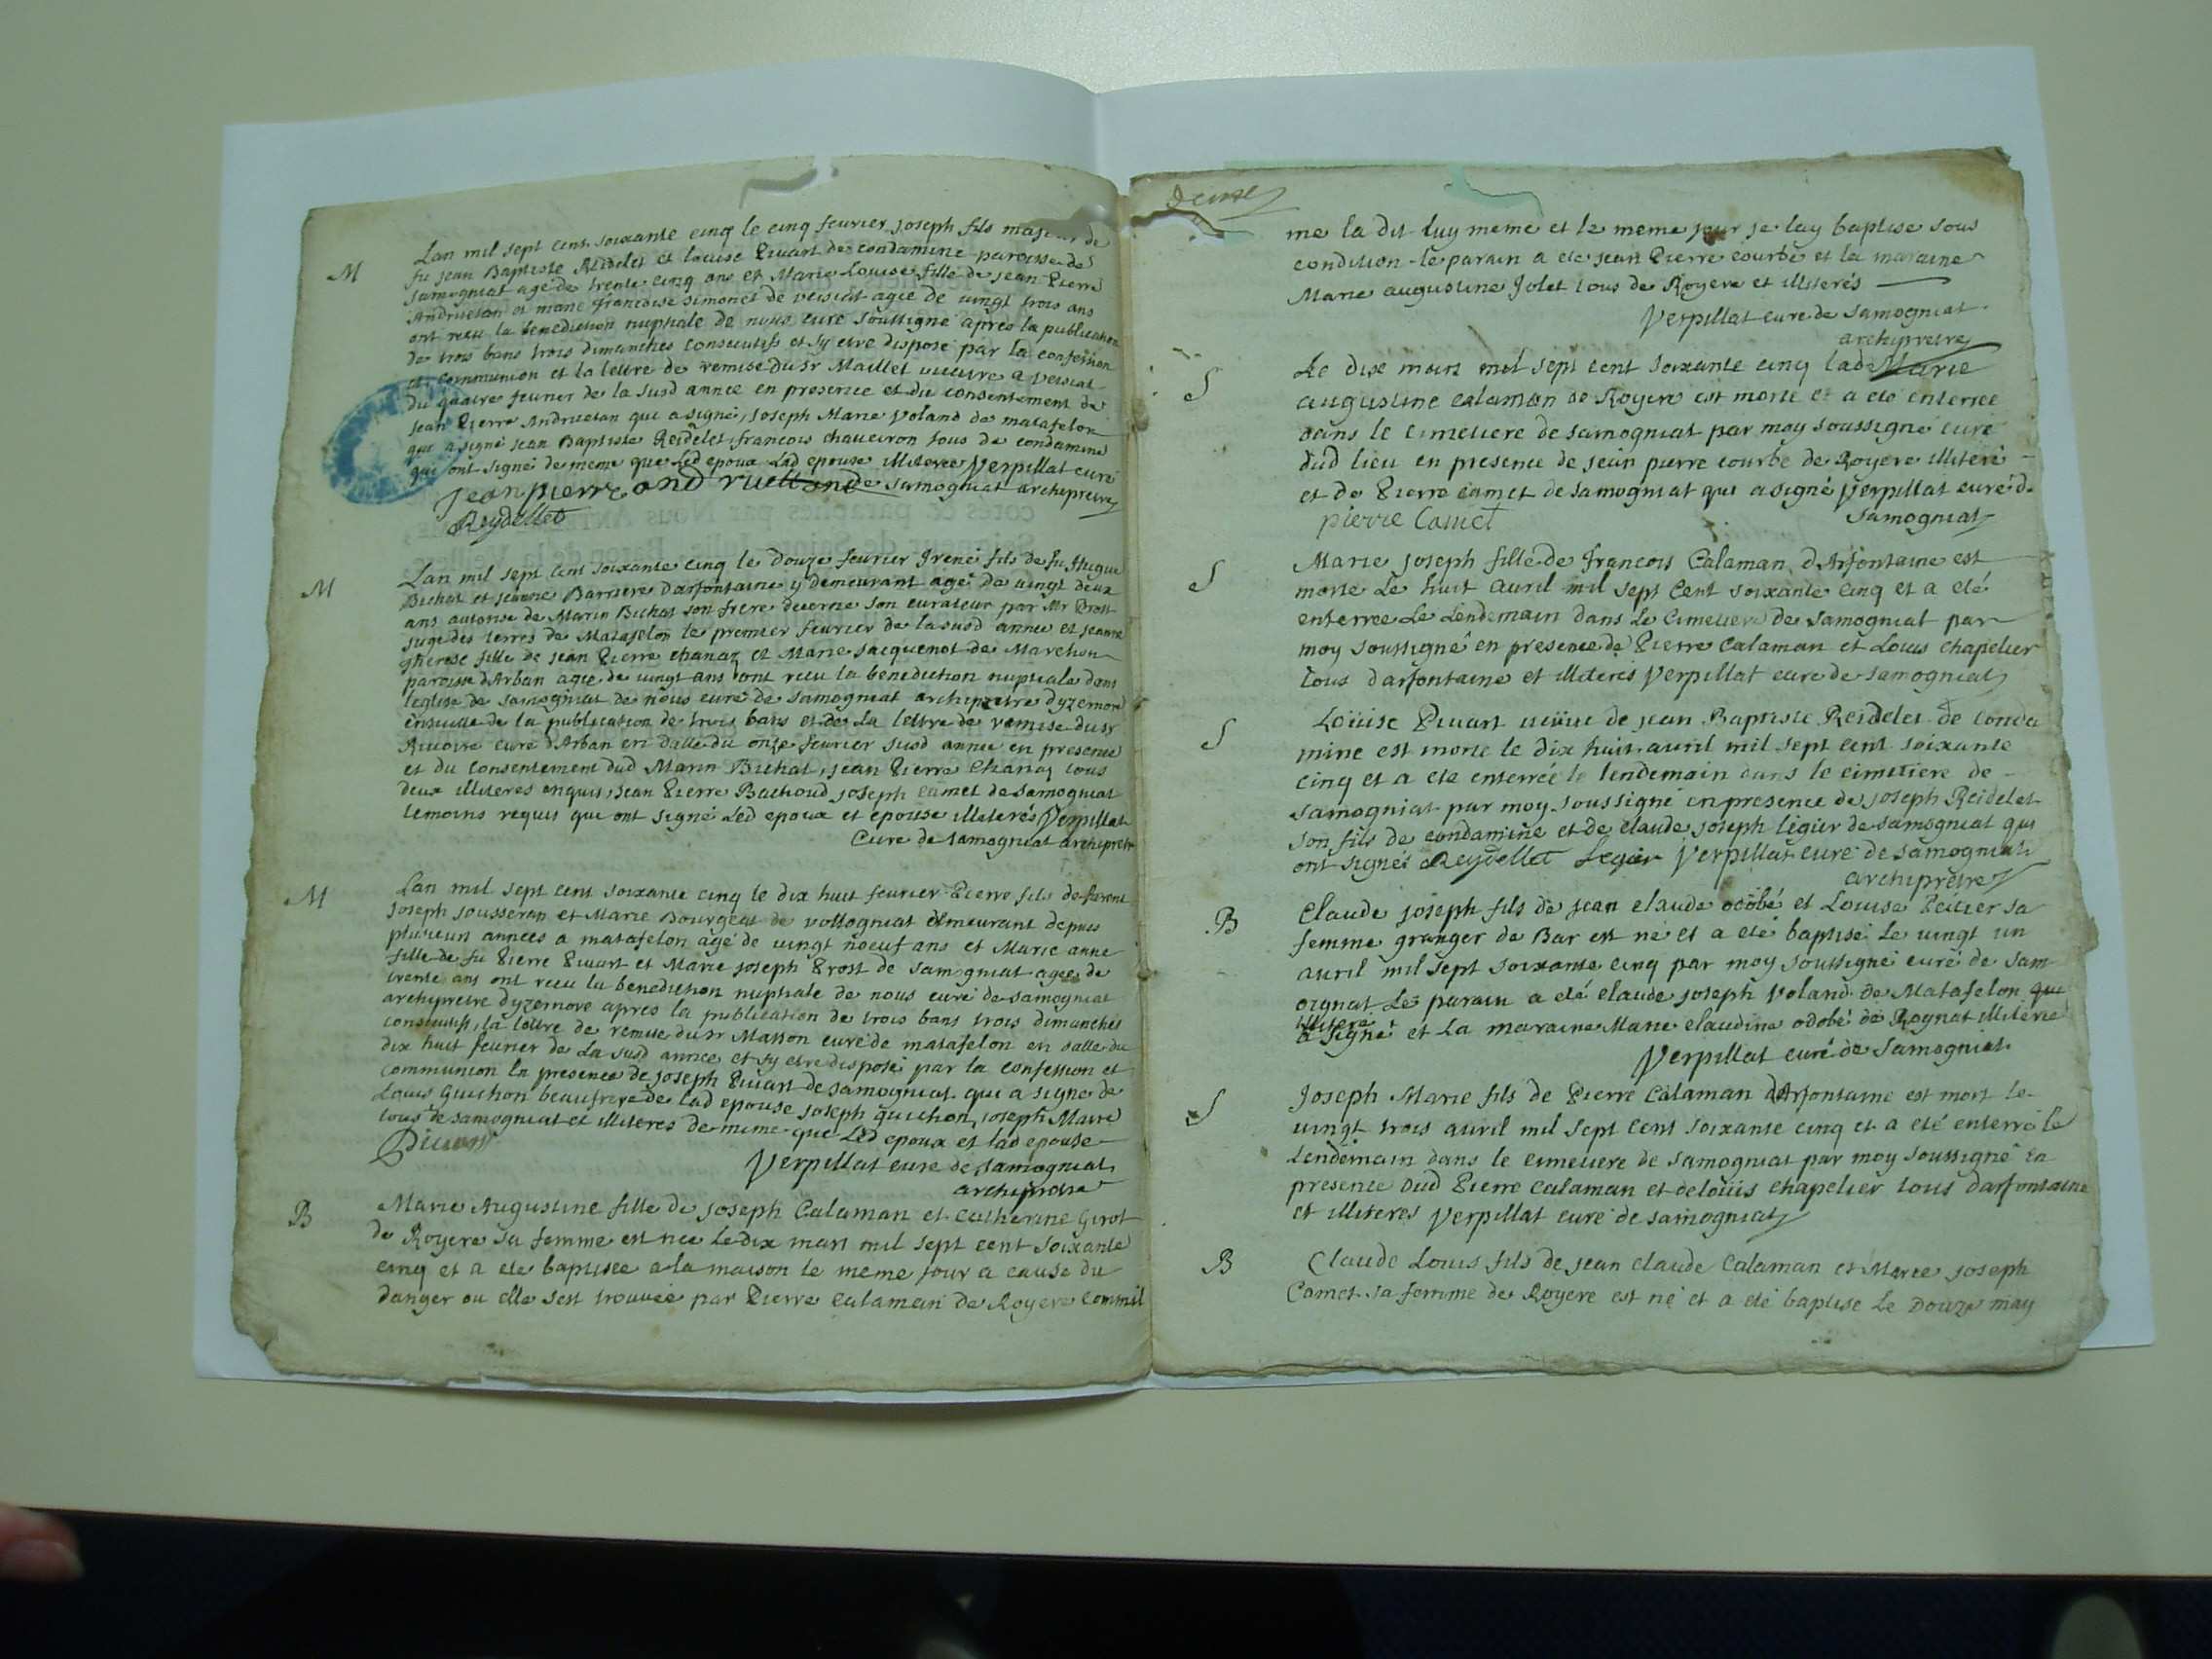 M
Lan mil sept cent soixante cinq le cinq fevrier joseph fils majeur de
fu jean Baptiste Reidelet et louise Pivart de condamine paroisse de
samogniat age de trente cinq ans et Marie Louise fille de jean Pierre
Andruetan et marie francoise simonet de veisiat agee de vingt trois ans
ont recu la benediction nuptiale de nous cure soussigne apres la publication
de trois bans trois dimanches consecutifs et sy etre dispose par la confession
et communion et la lettre de remise du sr Maillet vicaire a veisiat
du quatre fevrier de la susd annee en presence et du consentement de
jean Pierre Andruetan qui a signe, joseph Marie voland de matafelon
qui a signe jean Baptiste Reidelet francois chauviron tous de condamine
qui ont signe de meme que led epoux lad epouse illiteree Verpillat cure
de samogniat archipretre
jean pierre andruettand
Reydellet
M
Lan mil sept cent soixante cinq le douze fevrier Irené fils de fu Hugue
Bichat et jeanne Barriere darfontaine y demeurant agé de vingt deux
ans autorise de Marin Bichat son frere decerne son curateur par Mr Prost
juge des terres de Matafelon le premier fevrier de la susd annee et jeanne
therese fille de jean Pierre chanaz et Marie jacquenot de Marchon
paroisse dArban agee de vingt ans ont recu la benediction nuptiale dans
leglise de samogniat de nous cure de samogniat archipretre dyzernore
ensuitte de la publication de trois bans et de la lettre de remise du sr
Rivoire cure dArban en datte du onze fevrier susd annee en presence
et du consentement dud Marin Bichat, jean Pierre Chanaz tous
deux illiteres enquis, jean Pierre Bachoud joseph camet de samogniat
temoins requis qui ont signé Led epoux et epouse illiterés Verpillat
Cure de samogniat archipretre
M
Lan mil sept cent soixante cinq le dix huit fevrier Pierre fils de
joseph jousseran et Marie Bourgeat de vollogniat demeurant depuis
plusieurs annees a matafelon agé de vingt noeuf ans et Marie anne
fille de fu Pierre Pivart et Marie joseph Prost de samogniat agee de
trente ans ont recu la benediction nuptiale de nous curé de samogniat
archipretre dyzernore apres la publication de trois bans trois dimanches
consecutifs, la lettre de remise du sr Masson curé de matafelon en datte du
dix huit fevrier de la susd annee et sy etre disposé par la confession et
communion En presence de joseph Pivart de samogniat qui a signe de
Louis Guichon beaufrere de lad epouse joseph guichon, joseph Maire
tous de samogniat et illiteres de meme que led epoux et lad epouse
Verpillat cure de samogniat
archipretre
B
Marie Augustine fille de joseph Calaman et Catherine Girot
de Royere sa femme est nee le dix mars mil sept cent soixante
cinq et a ete baptisee a la maison le meme jour a cause du
danger ou elle sest trouvée par Pierre Calaman de Royere comme il
deuxe
me la dit luy meme et le meme jour je lay baptise sous
condition le parain a ete jean Pierre courbe et la maraine
Marie augustine Jolet tous de Royere et illiterés
Verpillat cure de samogniat
archipretre
S
Le dix mars mil sept cent soixante cinq lad Marie
augustine calaman de Royere est morte et a ete enterree
dans le cimetiere de samogniat par moy soussigné curé
dud lieu en presence de jean pierre courbe de Royere illiteré
et de Pierre camet de samogniat qui a signé Verpillat curé de
pierre Camet samogniat
S
Marie joseph fille de francois Calaman dArfontaine est
morte Le huit avril mil sept Cent soixante cinq et a eté
enterree Le Lendemain dans Le Cimetiere de samogniat par
moy soussigné en presence de Pierre Calaman et Louis chapelier
tous darfontaine et illiterés Verpillat cure de samogniat
S
Loüise Pivart veüve de jean Baptiste Reidelet de conda
mine est morte le dix huit avril mil sept cent soixante
cinq et a ete enterrée le lendemain dans le cimetiere de
samogniat par moy soussigné en presence de joseph Reidelet
son fils de condamine et de claude joseph légier de samogniat qui
ont signés Reydellet Legier Verpillat curé de samogniat
archiprêtre
B
Claude joseph fils de jean claude odobé et Louise Peitier sa
femme granger de Bar est né et a eté baptisé le vingt un
avril mil sept soixante cinq par moy soussigné curé de sam
ogniat Le parain a eté claude joseph voland de Matafelon qui
illiteré
a signé et la maraine Marie claudine odobé de Rognat illiterée
Verpillat curé de samogniat
S
Joseph Marie fils de Pierre Calaman dArfontaine est mort le
vingt trois avril mil sept cent soixante cinq et a eté enterré le
Lendemain dans le cimetiere de samogniat par moy soussigné en
presence dud Pierre calaman et de loüis chapelier tous darfontaine
et illiteres Verpillat curé de samogniat
B
Claude Louis fils de jean claude Calaman et Marie joseph
Camet sa femme de Royere est né et a eté baptise Le Douze may